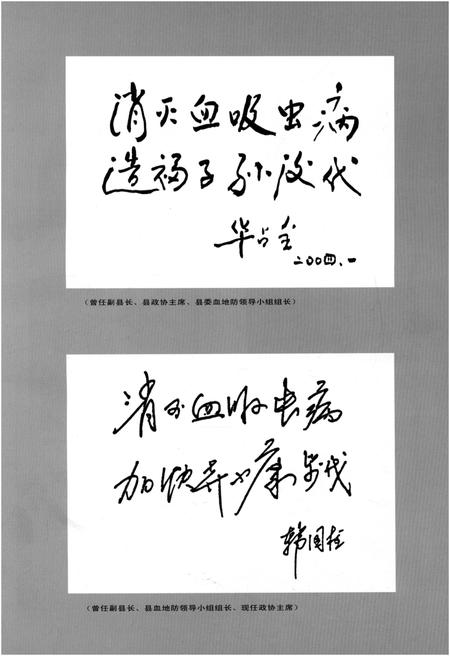 消灭血吸虫病
造福子孙後代
华占全
二00四.一
（曾任副县长、县政协主席、县委血地防领导小组组长）
消灭血吸虫病
加快奔小康步伐
韩国柱
（曾任副县长、县血地防领导小组组长、现任政协主席）